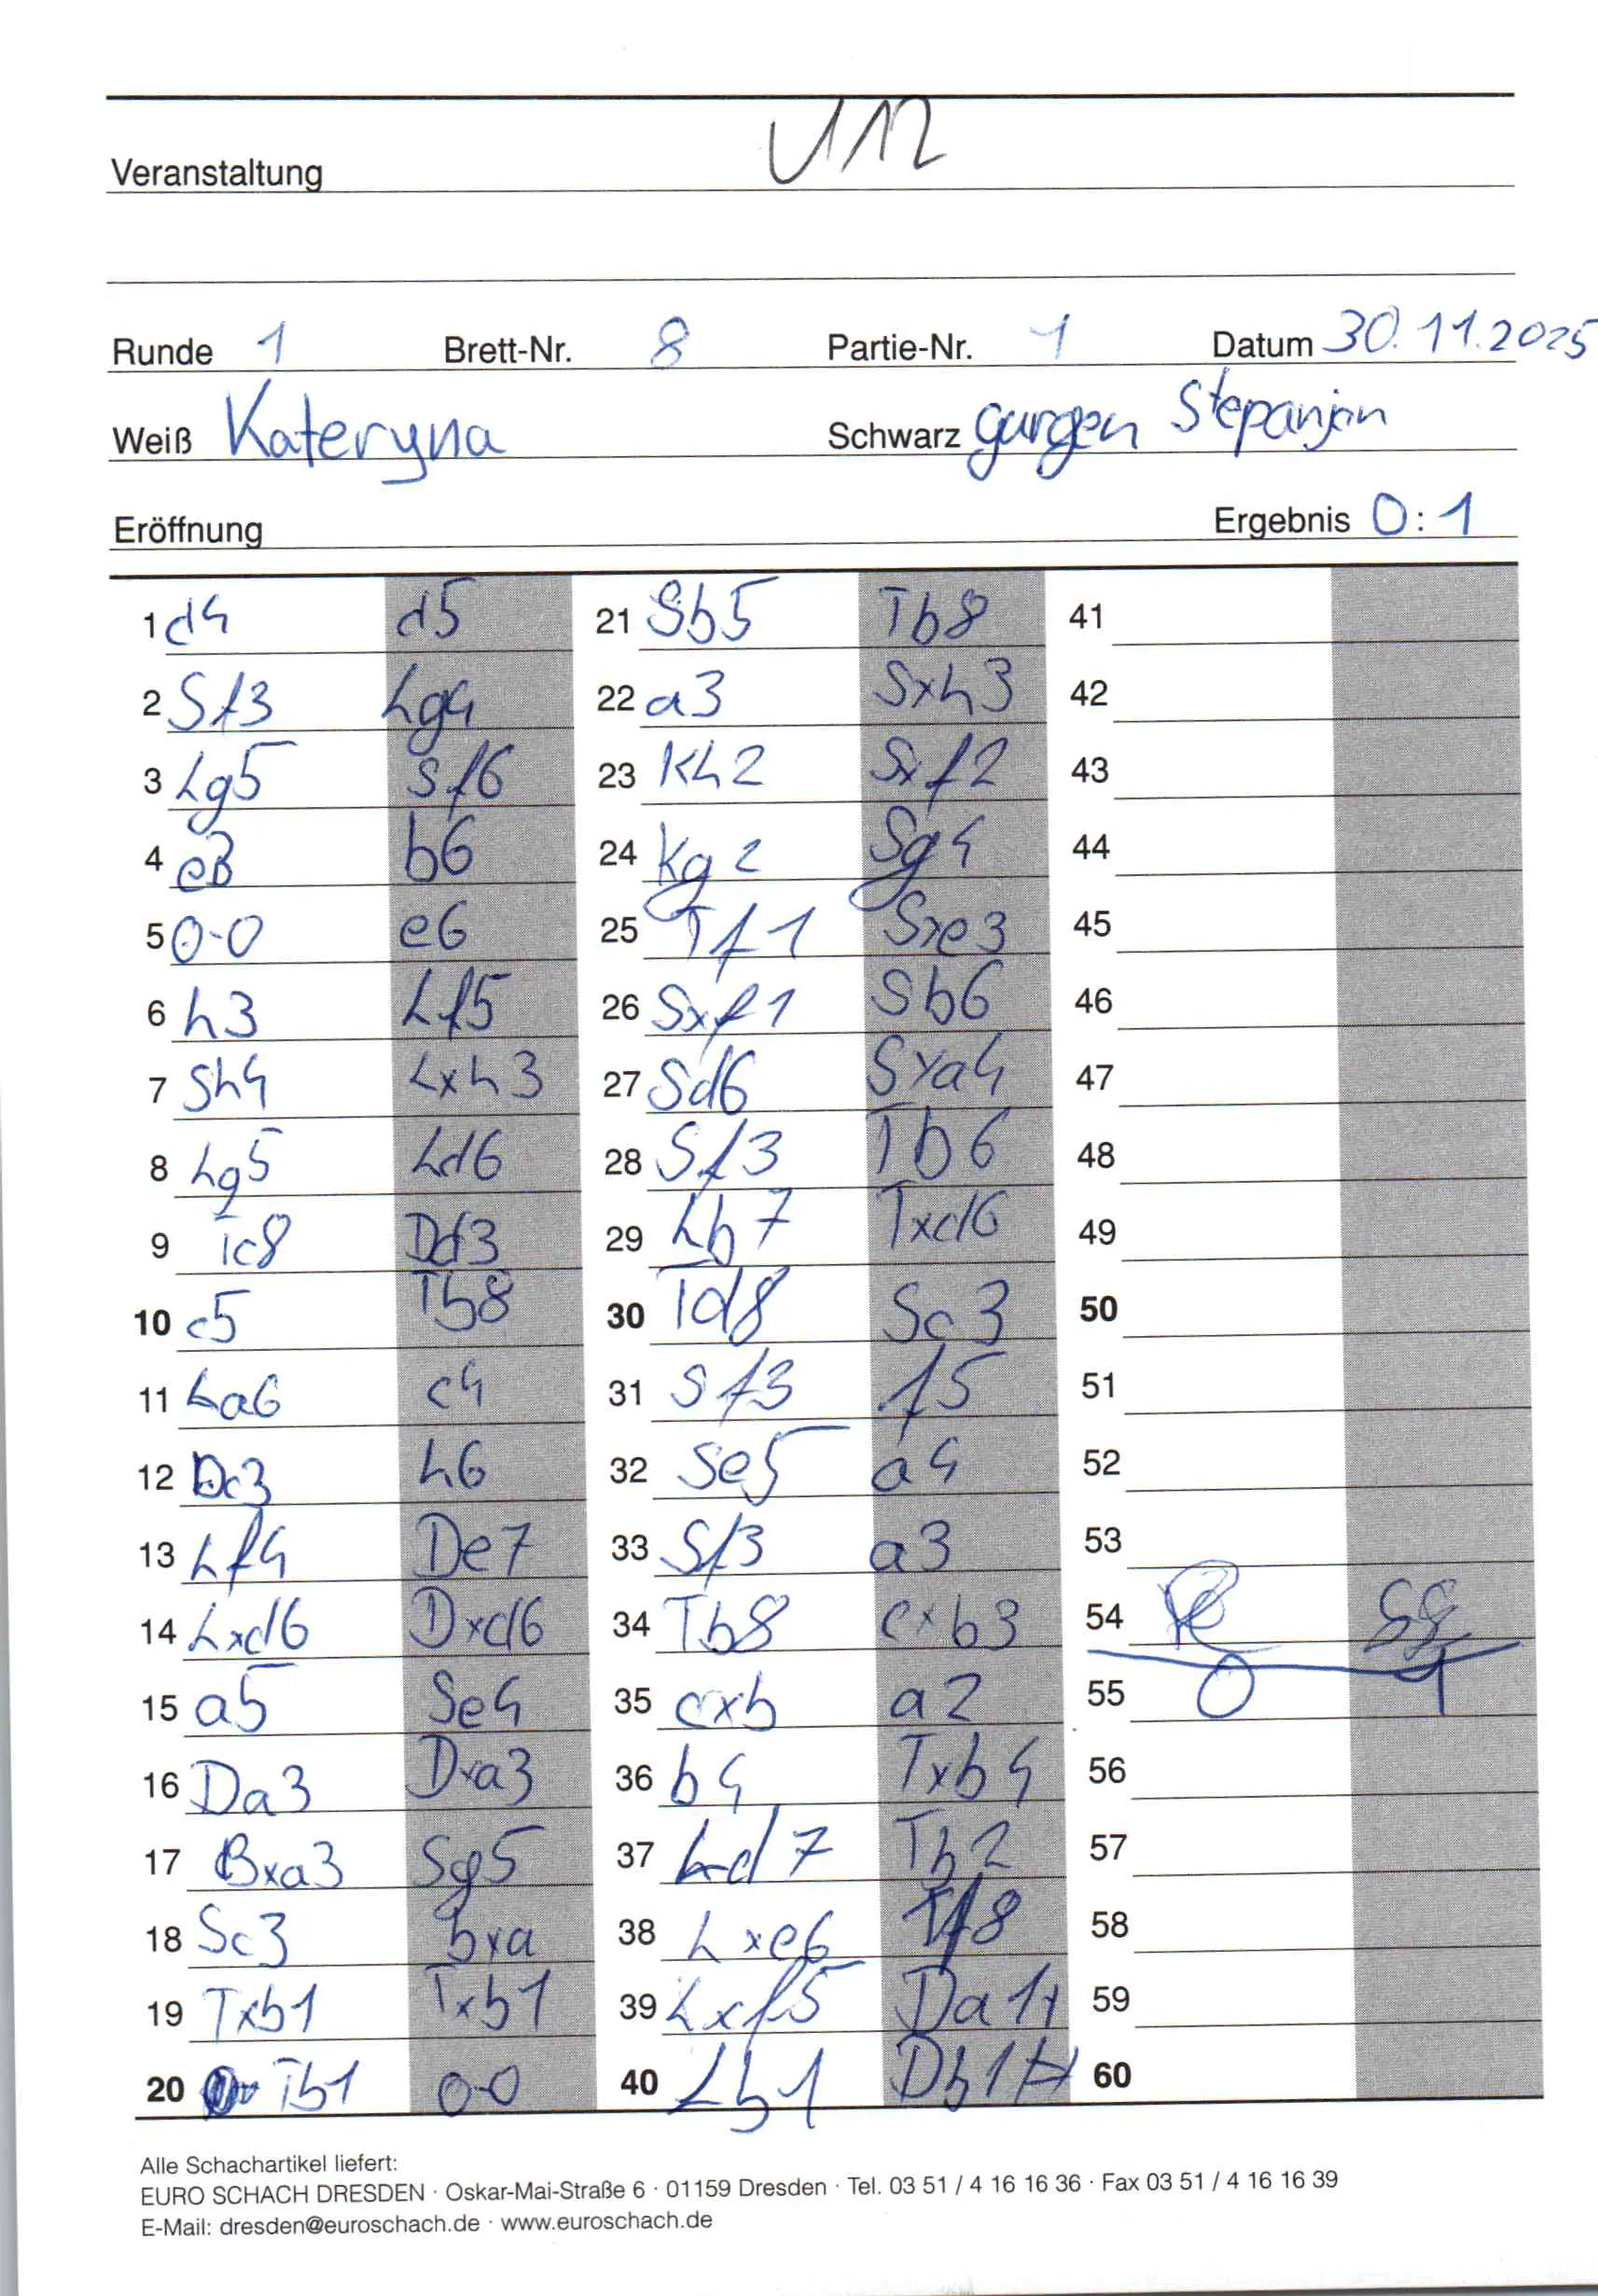 U12
Veranstaltung
Runde 1 Brett-Nr. 8 Partie-Nr. 1 Datum 30.11.2025
Weiß Kateryna Schwarz Gurgen Stepanjan
Eröffnung Ergebnis 0:1
1 d4 d5 21 Sb5 Tb8 41
2 Sf3 Lg4 22 a3 Sxh3 42
3 Lg5 Sf6 23 Kh2 Sxf2 43
4 e3 b6 24 Kg2 Sg4 44
5 0-0 e6 25 Tf1 Sxe3 45
6 h3 Lf5 26 Sxf1 Sb6 46
7 Sh4 Lxh3 27 Sd6 Sxa4 47
8 Lg5 Ld6 28 Sf3 Tb6 48
9 Tc8 Dd3 29 Lb7 Txd6 49
10 c5 Tb8 30 Td8 Sc3 50
11 La6 c4 31 Sf3 f5 51
12 Dc3 h6 32 Se5 a4 52
13 Lf4 De7 33 Sf3 a3 53
14 Lxd6 Dxd6 34 Tb8 cxb3 54
15 a5 Se4 35 cxb a2 55 0 1
16 Da3 Dxa3 36 b4 Txb4 56
17 Bxa3 Sg5 37 Ld7 Tb2 57
18 Sc3 bxa 38 Lxe6 Tf8 58
19 Txb1 Txb1 39 Lxf5 Da1+ 59
20 Tb1 0-0 40 Lb1 Db1# 60
Alle Schachartikel liefert:
EURO SCHACH DRESDEN · Oskar-Mai-Straße 6 · 01159 Dresden · Tel. 03 51 / 4 16 16 36 · Fax 03 51 / 4 16 16 39
E-Mail: dresden@euroschach.de · www.euroschach.de